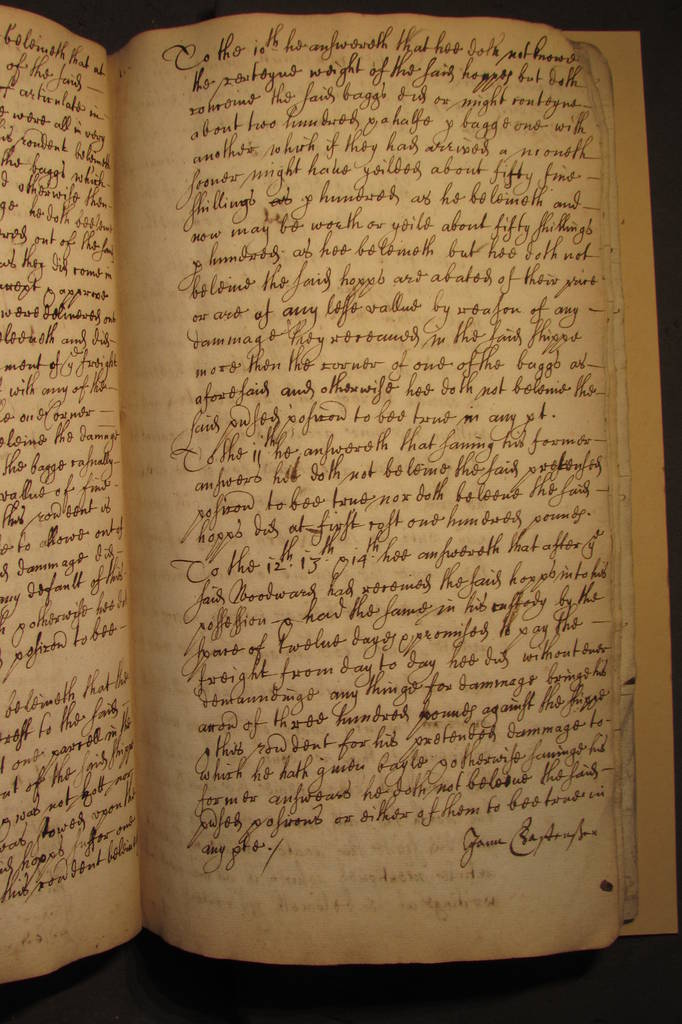 beleiveth that at
of the said -
articulate in
were all in very
rendent beleiveth
the baggs which
otherwise then
he doth
out of the said
as they did come in
approve
were delivered out
beleeveth and did
ment of ye freight
with any of the
one Corner -
beleive the damage
the bagge casually
vallue of five
this rendent is
to allowe out of
damage did
any default of this
otherwise hee doth
position to bee -
beleiveth that the
to the said -
one parcell in the
of the said shippe
was not nor
was towed upon the
hopps suffer one
this rendent beleiveth
To the 10th he answereth that hee doth not knowe
the certeyne weight of the said hopps but doth
conceive the said baggs did or might conteyne -
about two hundred & a halfe p bagge one with
another, which if they had arrived a moneth
sooner might have yeilded about fifty five -
shillings p hundred as he beleiveth and -
now may be worth or yeild about fifty shillings
p hundred as hee beleiveth but hee doth not
beleive the said hopps are abated of their price
or are of any lesse vallue by reason of any -
dammage they received in the said shippe
more then the corner of one of the baggs as -
aforesaid and otherwise hee doth not beleive the -
said position to bee true in any pt.
To the 11th he answereth that saving his former -
answers hee doth not beleive the said pretensed
position to bee true nor doth beleeve the said -
hopps did at first cost one hundred pounds.
To the 12th. 13th & 14th hee answereth that after ye
said Woodward had received the said hopps into his
possession & had the same in his custody by the
space of twelve dayes & promised to pay the -
freight from day to day hee did without ever
demaundinge any thinge for dammage bringe his
accon of three hundred pounds against the shippe
& this rendent for his pretended dammage to -
which he hath given bayle & otherwise savinge his
former answears he doth not beleeve the said -
positions or either of them to bee true in
any pte ./